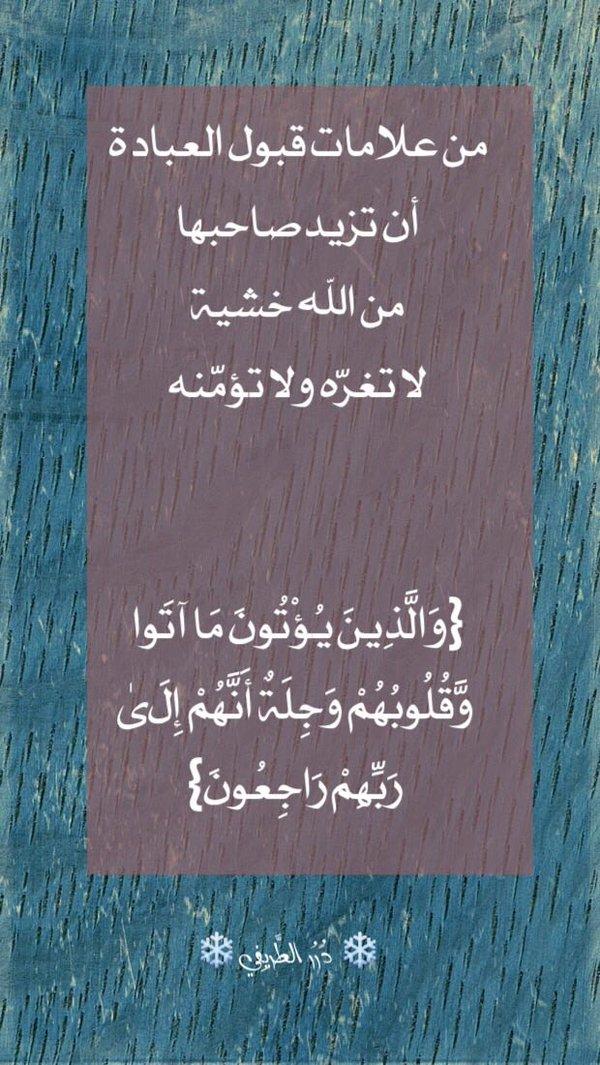 من علامات قبول العبادة
أن تزيد صاحبها
من اللّه خشية
لا تغرّه ولا تؤمّنه
{وَالَّذِينَ يُؤْتُونَ مَا آتَوا
وَّقُلُوبُهُمْ وَجِلَةٌ أَنَّهُمْ إِلَىٰ
رَبِّهِمْ رَاجِعُونَ}
❄ دُرَر الطَّريفي ❄